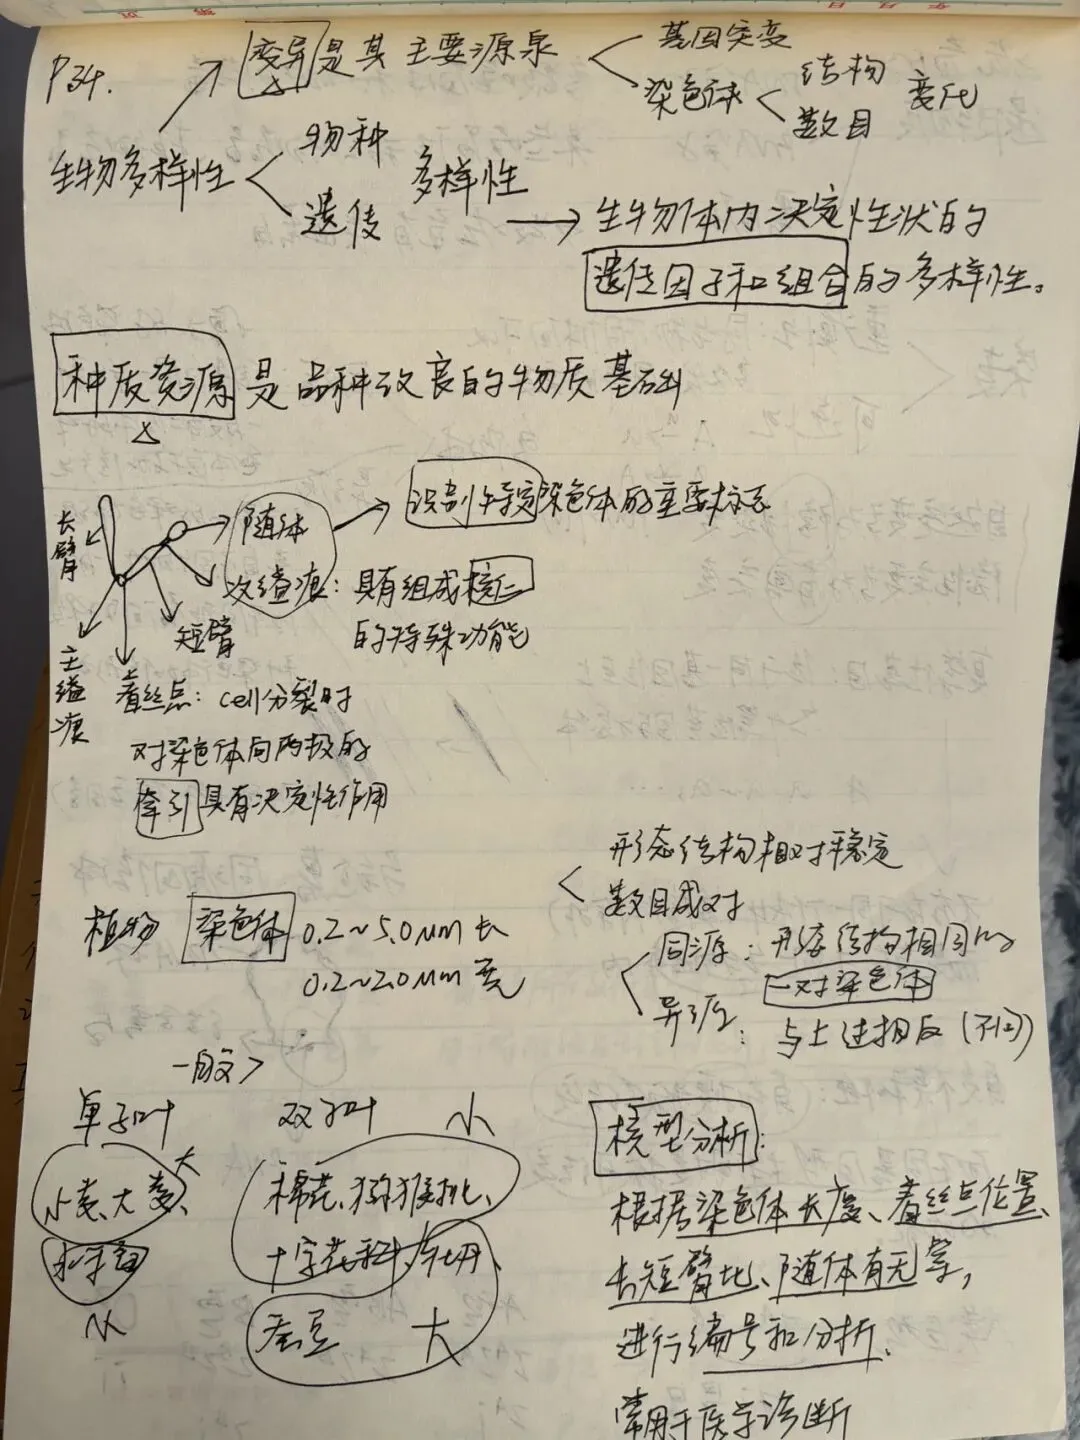 P34.
变异是其主要源泉
基因突变
染色体
结构
数目
变化
生物多样性
物种
遗传
多样性
生物体内决定性状的
遗传因子和组合的多样性。
种质资源是品种改良的物质基础
长臂
随体
识别特定染色体的重要标志
次缢痕：具有组成核仁
的特殊功能
短臂
主缢痕
着丝点：cell分裂时
对染色体向两极的
牵引具有决定性作用
形态结构相对稳定
数目成对
植物 染色体 0.2~5.0μm长
0.2~2.0μm宽
同源：形态结构相同的
一对染色体
异源：与上述相反(不同)
一般>
单子叶 双子叶 小
小麦、大麦、大
水稻
小
棉花、猕猴桃、
十字花科、牡丹
蚕豆 大
核型分析：
根据染色体长度、着丝点位置、
长短臂比、随体有无等，
进行编号和分析.
常用于医学诊断